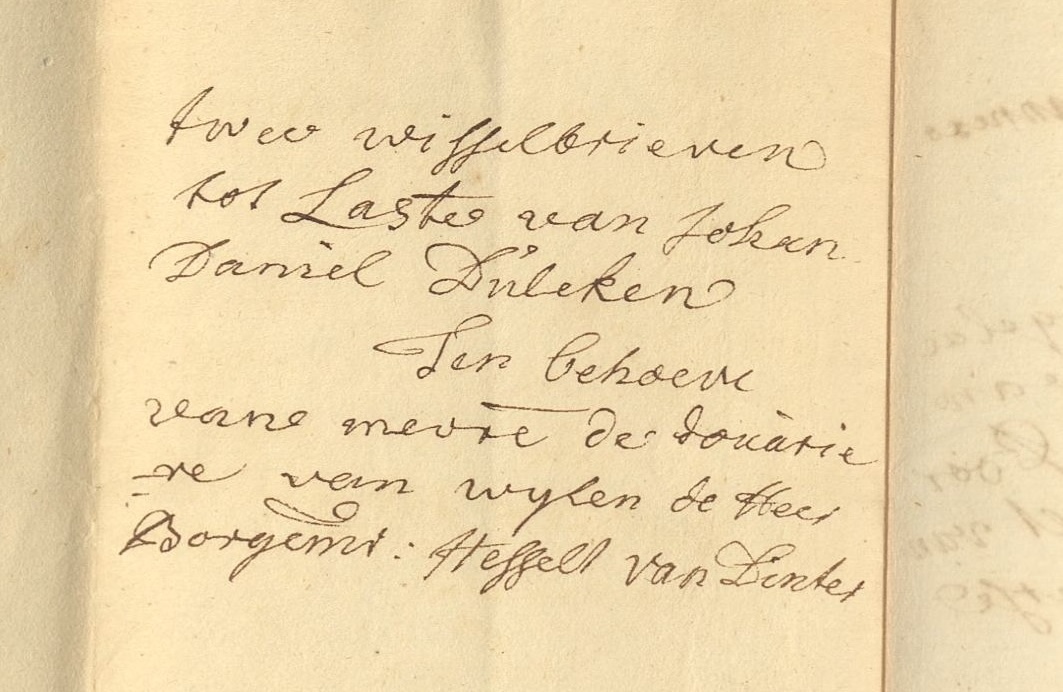 twee wisselbrieven
tot Laste van Johan
Daniel Dulcken
Ten behoeve
vane mevre de douàrie
-re van wylen de Heer
Borgemr: Hesselt van Dinter